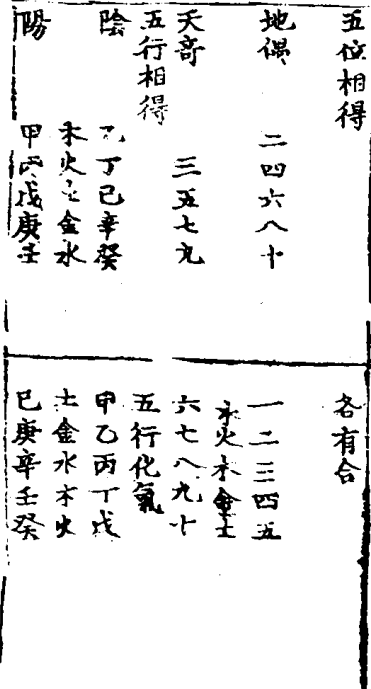 五位相得
地偶 二四六八十
天奇 三五七九
五行相得
陰 乙丁己辛癸
木火土金水
陽 甲丙戊庚壬
各有合
一二三四五
水火木金土
六七八九十
五行化氣
甲乙丙丁戊
土金水木火
己庚辛壬癸